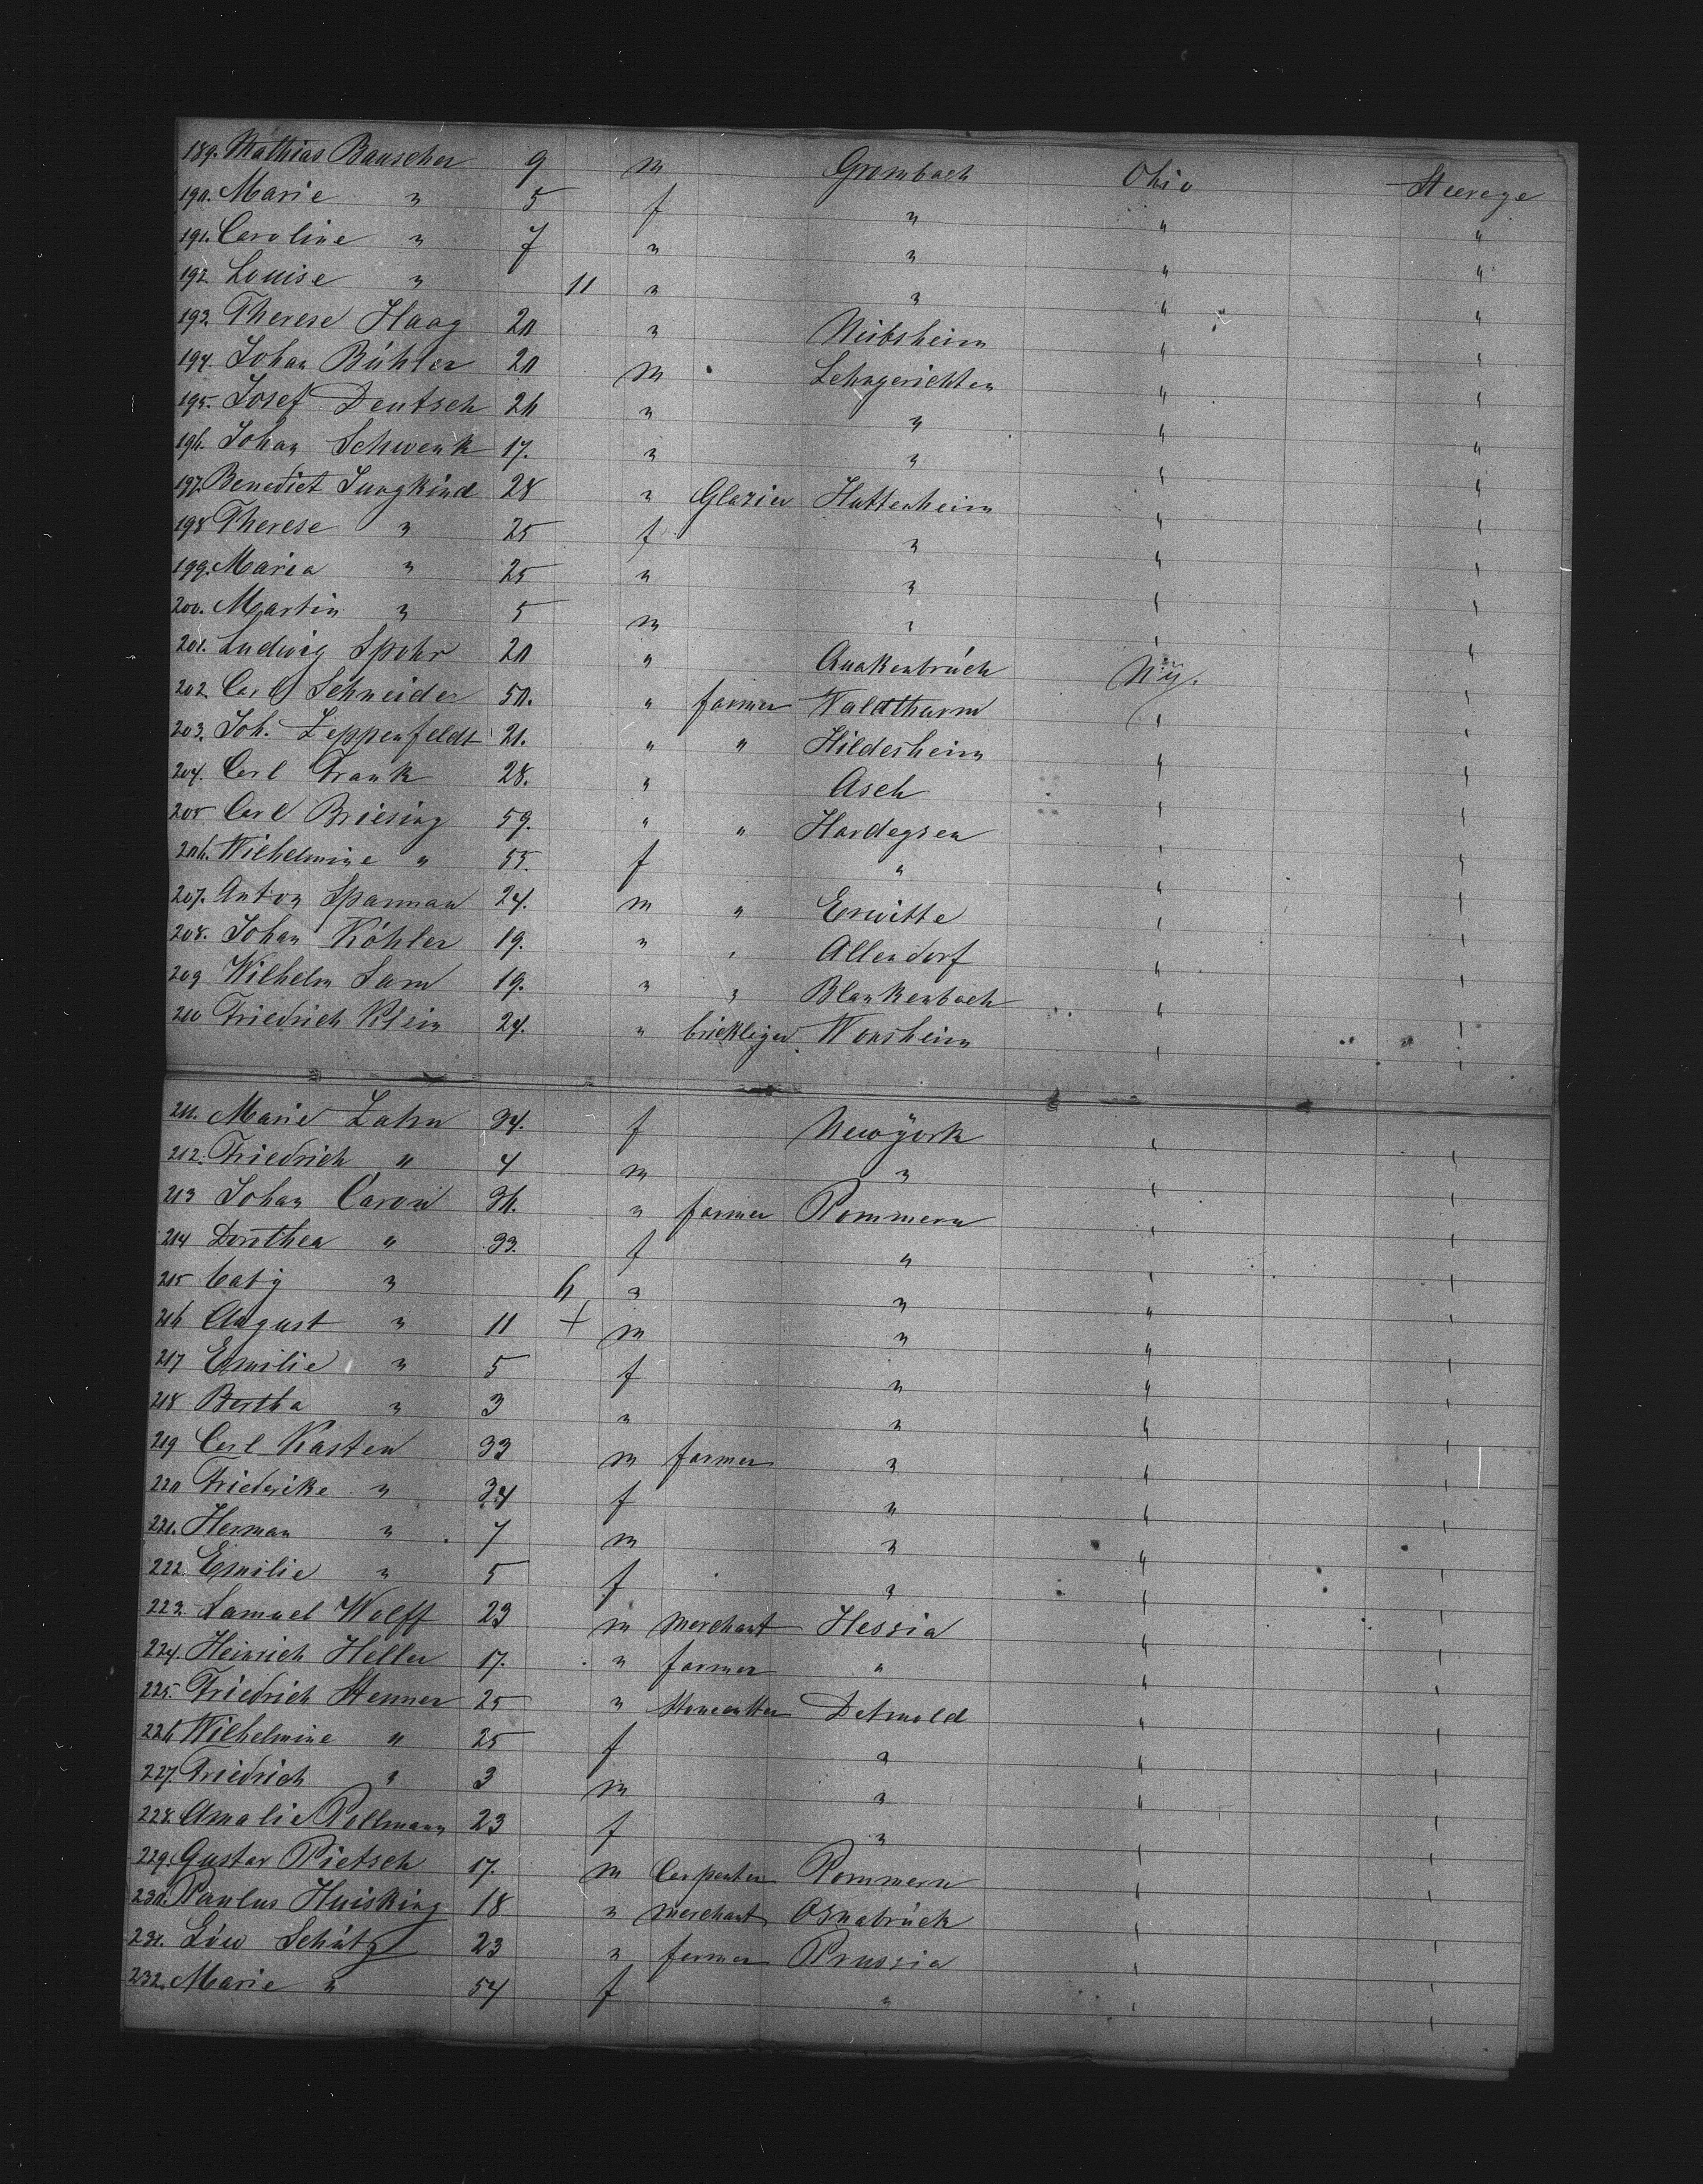 189. Mathias Bauscher 9 m Grombach Ohio Steerage
190. Marie " 5 f " " "
191. Caroline " 7 " " " "
192. Louise " 11 " " " "
193. Therese Haag 20 " Neibsheim " "
194. Johan Bühler 20 m Lehngerichten " "
195. Josef Deutsch 26 " " " "
196. Johan Schwenk 17. " " " "
197. Benedict Jungkind 28 " Glazier Huttenheim " "
198 Therese " 25 f " " "
199. Maria " 25 " " " "
200. Martin " 5 m " " "
201. Ludwig Spohr 20 " Quakenbrück N.Y. "
202. Carl Schneider 50. " farmer Waldthurm " "
203. Joh. Zeppenfeldt 21. " " Hildesheim " "
204. Carl Frank 28. " Asch " "
205 Carl Briesing 59. " " Hardegsen " "
206. Wilhelmine " 55. f " " "
207. Anton Sparman 24. m " Erwitte " "
208. Johan Köhler 19. " " Allendorf " "
209 Wilhelm Sam 19. " " Blankenbach " "
210 Friedrich Klein 24. " bricklayer Wonsheim " "
211. Marie Zahn 34. f Newyork " "
212. Friedrich " 4 m " " "
213 Johan Carow 36. " farmer Pommern " "
214 Dorothea " 33. f " " "
215 Caty " 6 " " " "
216 August " 11 + m " " "
217 Emilie " 5 f " " "
218 Bertha " 3 " " " "
219 Carl Kasten 33 m farmer " " "
220 Friederike " 34 f " " "
221. Herman " 7 m " " "
222. Emilie " 5 f " " "
223. Samuel Wolff 23 m merchant Hessia " "
224. Heinrich Heller 17. " farmer " " "
225. Friedrich Stenner 25 " stonecutter Detmold " "
226 Wilhelmine " 25 f " " "
227. Friedrich " 3 m " " "
228. Amalie Pollmann 23 f " " "
229. Gustav Pietsch 17. m Carpenter Pommern " "
230. Paulus Huisking 18 " merchant Osnabrück " "
231. Löw Schütz 23 " farmer Prussia " "
232. Marie " 54 f " " "